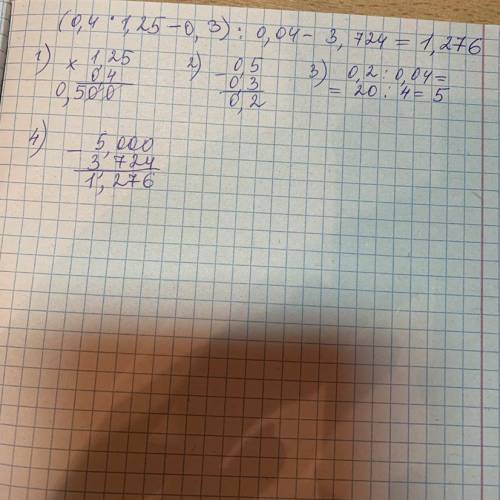 (0,4 · 1,25 - 0,3) : 0,04 - 3,724 = 1,276
1) × 1,25
0,4
0,500
2) - 0,5
0,3
0,2
3) 0,2 : 0,04 =
= 20 : 4 = 5
4) - 5,000
3,724
1,276